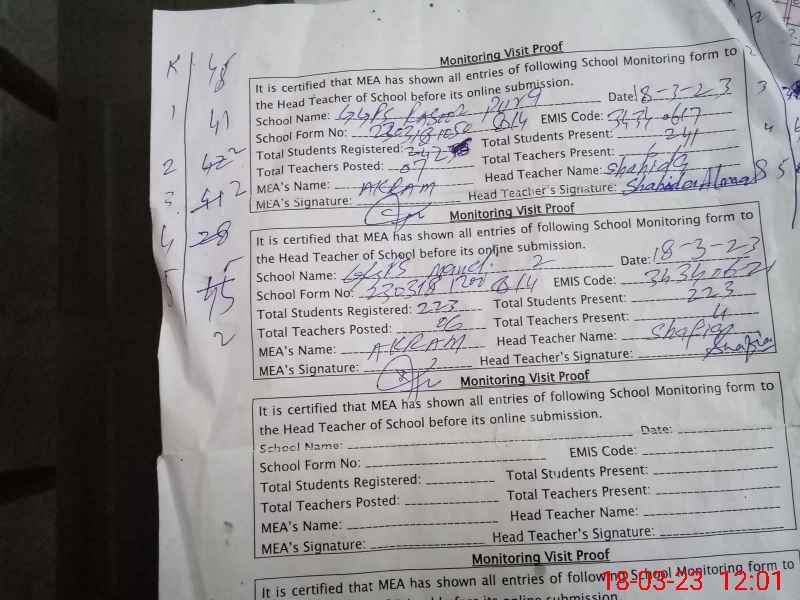 Monitoring Visit Proof
It is certified that MEA has shown all entries of following School Monitoring form to
the Head Teacher of School before its online submission.
School Name: GGPS Rasool Pura Date: 18-3-23
School Form No: 230318 1050 EMIS Code: 3434 0617
Total Students Registered: 242 Total Students Present: 241
Total Teachers Posted: 07 Total Teachers Present:
MEA's Name: AKRAM Head Teacher Name: Shahida
MEA's Signature: Head Teacher's Signature: Shahida
Monitoring Visit Proof
It is certified that MEA has shown all entries of following School Monitoring form to
the Head Teacher of School before its online submission.
School Name: GGPS 2 Date: 18-3-23
School Form No: 230318 1200 EMIS Code: 3434 0621
Total Students Registered: 223 Total Students Present: 223
Total Teachers Posted: 06 Total Teachers Present: 4
MEA's Name: AKRAM Head Teacher Name: Shafia
MEA's Signature: Head Teacher's Signature: Shafia
Monitoring Visit Proof
It is certified that MEA has shown all entries of following School Monitoring form to
the Head Teacher of School before its online submission.
School Name: Date:
School Form No: EMIS Code:
Total Students Registered: Total Students Present:
Total Teachers Posted: Total Teachers Present:
MEA's Name: Head Teacher Name:
MEA's Signature: Head Teacher's Signature:
Monitoring Visit Proof
It is certified that MEA has shown all entries of following School Monitoring form to
K 48
1 41
2 42
3 41
4 28
5 45
2
18-03-23 12:01